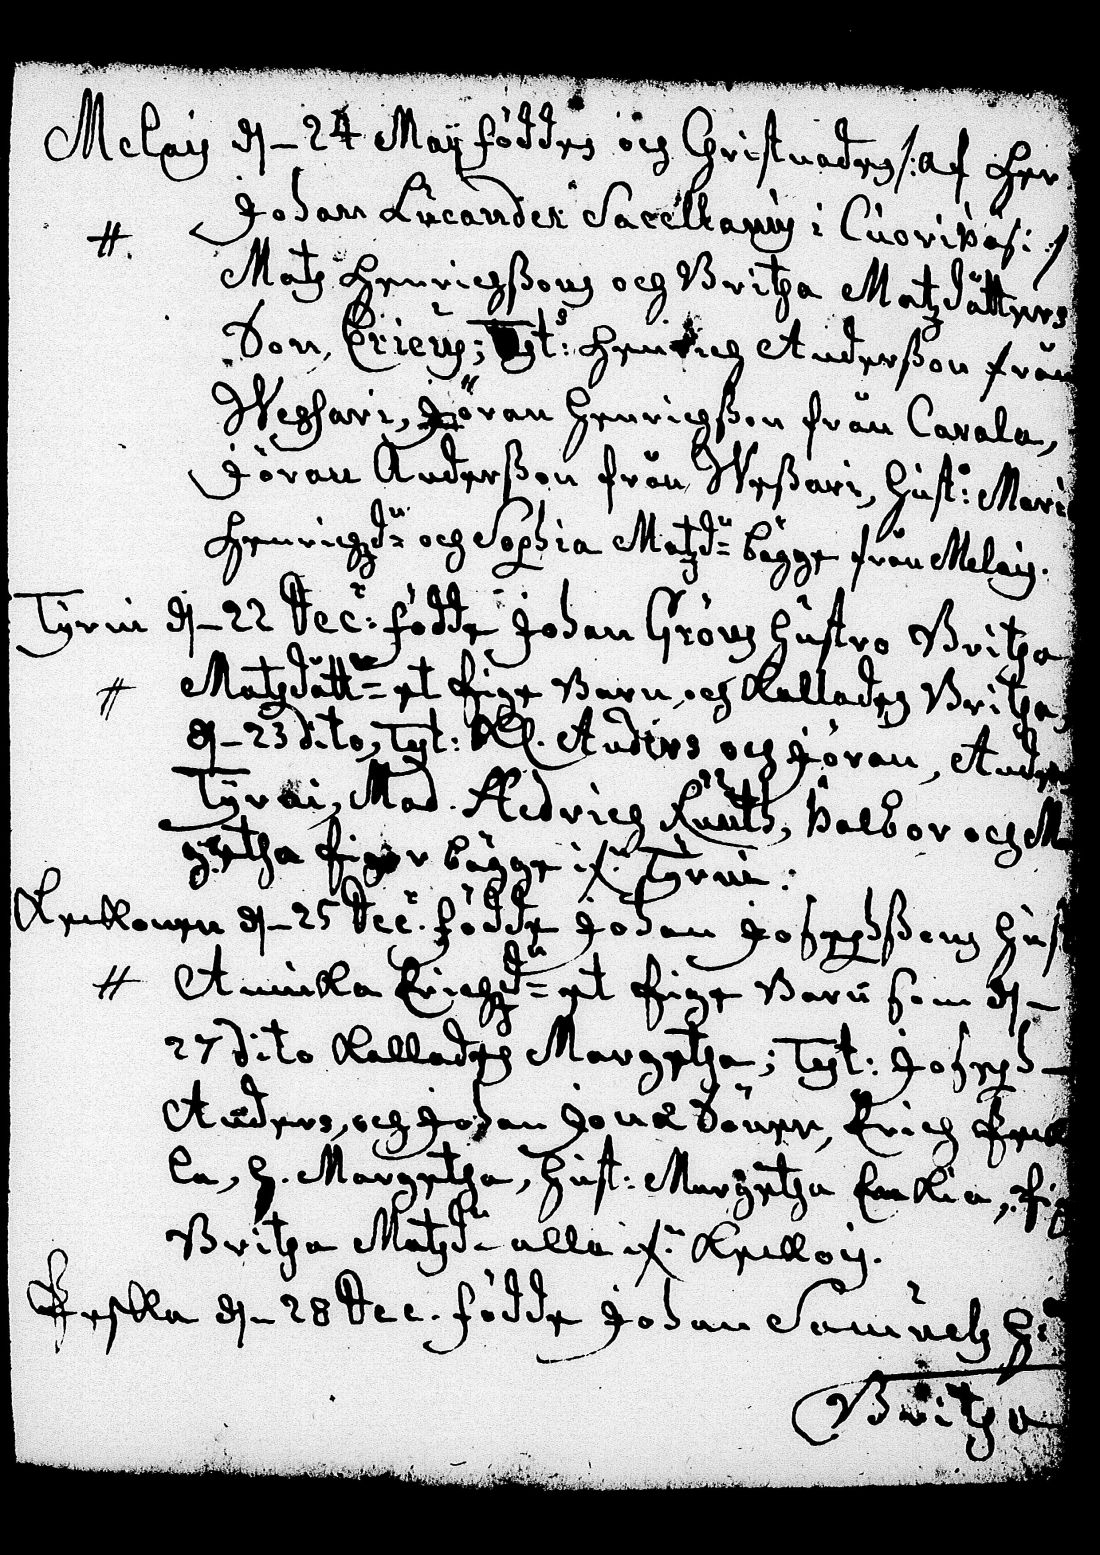 Melois d – 24 Maij föddes och Christnades /: af Her
Johan Lucander Sacellanus i Cuorivesi :/
#. Matz Henrichßons och Britha Matzdåtters
Son, Ericus; Tyt: Henrich Anderßon från
Weßari, Jöran Henrichßon från Cavala,
Jöran Anderßon från Weßari, Hust: Mari
Henrichzd:r och Sophia Matzd:r bägge från Melois.
Tyrui d – 22 Dec:r födde Johan Gröns Hustro Britha
# Matzdått:r et fige Barn, och Kallades Britha,
d – 23 dito, Tyt: Kl. Anders och Jöran, And
Tyrui, Mad. Hedrich, Valbor och M
gretha figor bägge i Tyrui.
Keukonen d – 25 Dec:r födde Johan Josephßons Hust
# Annikka Erichzd:r et fige Barn som d –
27 dito Kallades Margetha; Tyt: Joseph –
Anders, och Johan Sönner, Erich
la, h. Margetha, Hust: Margetha, fig
Britha Matzd:r alla i Keukois.
d – 28 Dec. födde Johan Samuels H
Britha